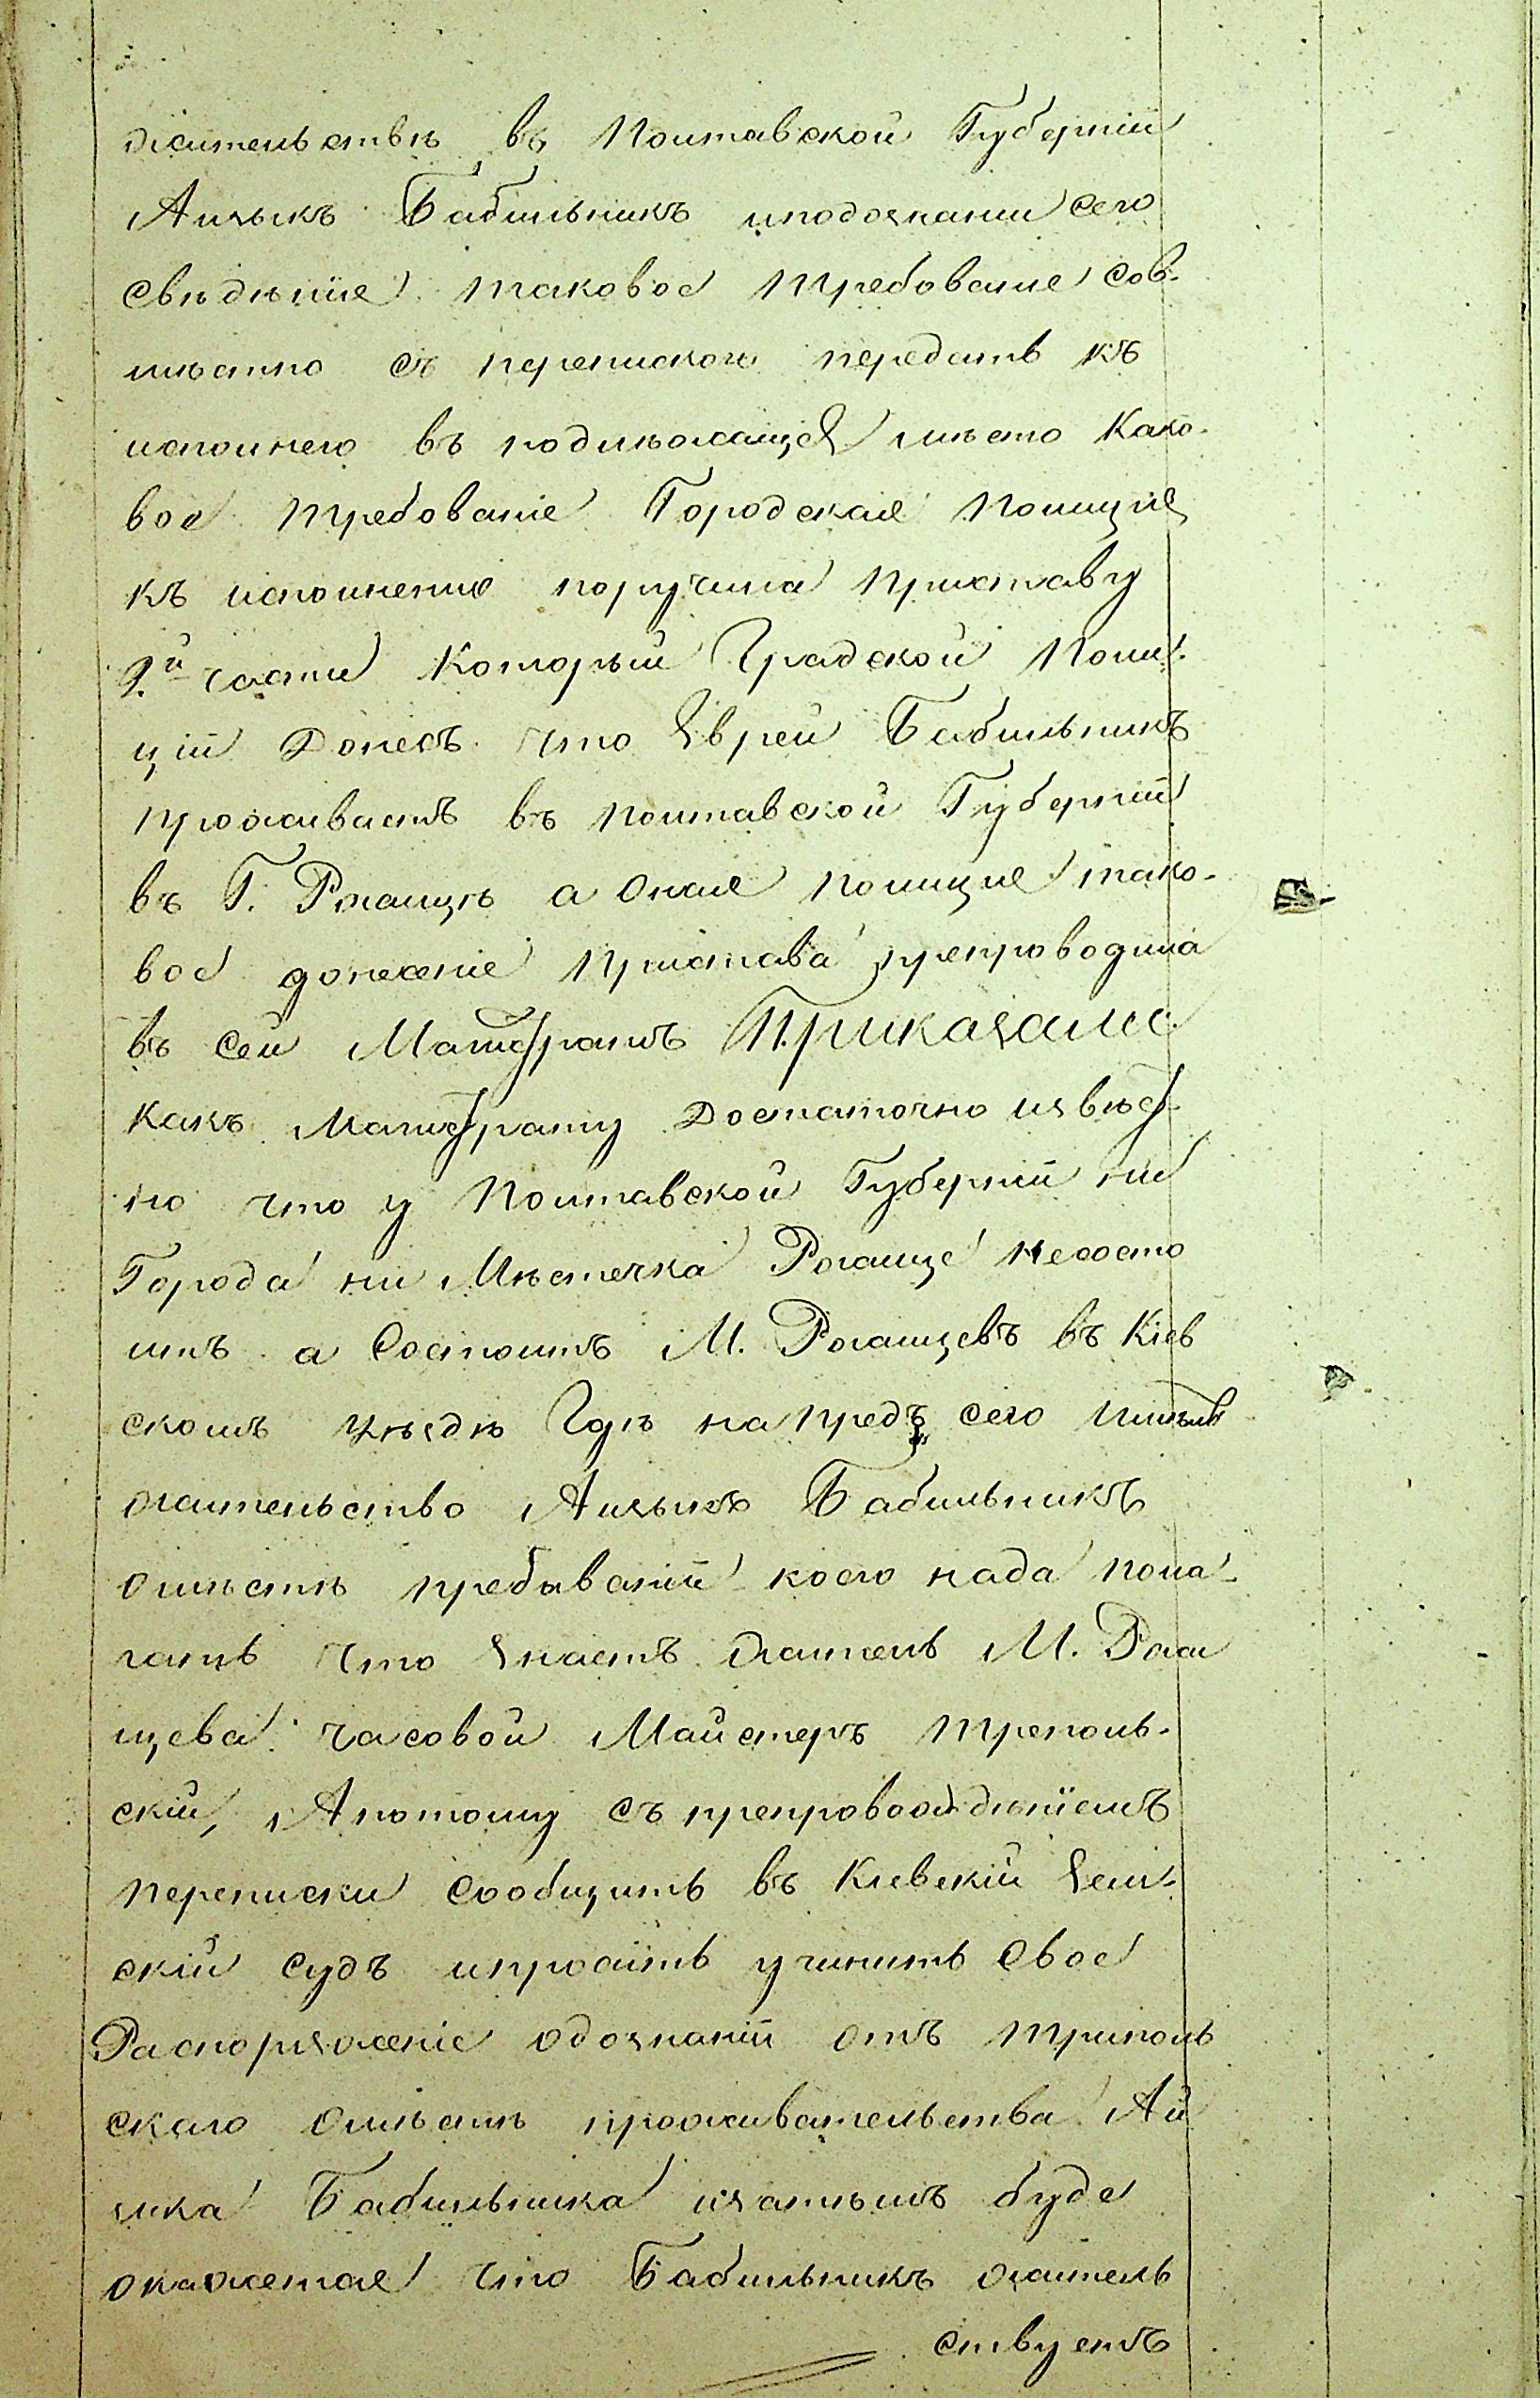 жительствѣ въ Полтавской Губерніи
Аизыкъ Бабильникъ иподознаніи сего
свѣдѣнїе таковое требование сов-
мѣстно съ перепискою передать къ
исполнею въ подлѣжащея мѣсто Како-
вое требованіе Городская полиция
къ исполнению поручила приставу
2.й части который Градской Поли-
ціи Донесъ что Еврей Бабильникъ
проживаетъ въ полтавской Губерніи
въ Г. Рогащѣ а оная полиция тако-
вое донесеніе пристава препроводила
въ сей Магистратъ Приказали:
какъ Магистрату достаточно извѣст-
но что у Полтавской Губерніи ни
Города ни Мѣстечка Рогаще несосто
итъ а состоитъ М. Рогащевъ въ Кіев
скомъ уѣздѣ Гдѣ напредъ сего имелъ
жительство Аизыкъ Бабильникъ
омѣстѣ пребываніи коего нада пола-
гать что знаетъ жатель М. Рога
щева часовой Майстеръ Треполь-
скій, Апотому съ препровождѣнїемъ
переписки сообщить въ Кіевскій Зем-
скій судъ ипросить учинить свое
Распоряженіе одознаніи отъ Триполь
скаго омѣстѣ проживательства Ай
зика Бабильника изатѣмъ буде
окажетае что Бабильникъ житель
ствуетъ